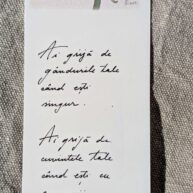 Ai grijă de
gândurile tale
când ești
singur.
Ai grijă de
cuvintele tale
când ești cu